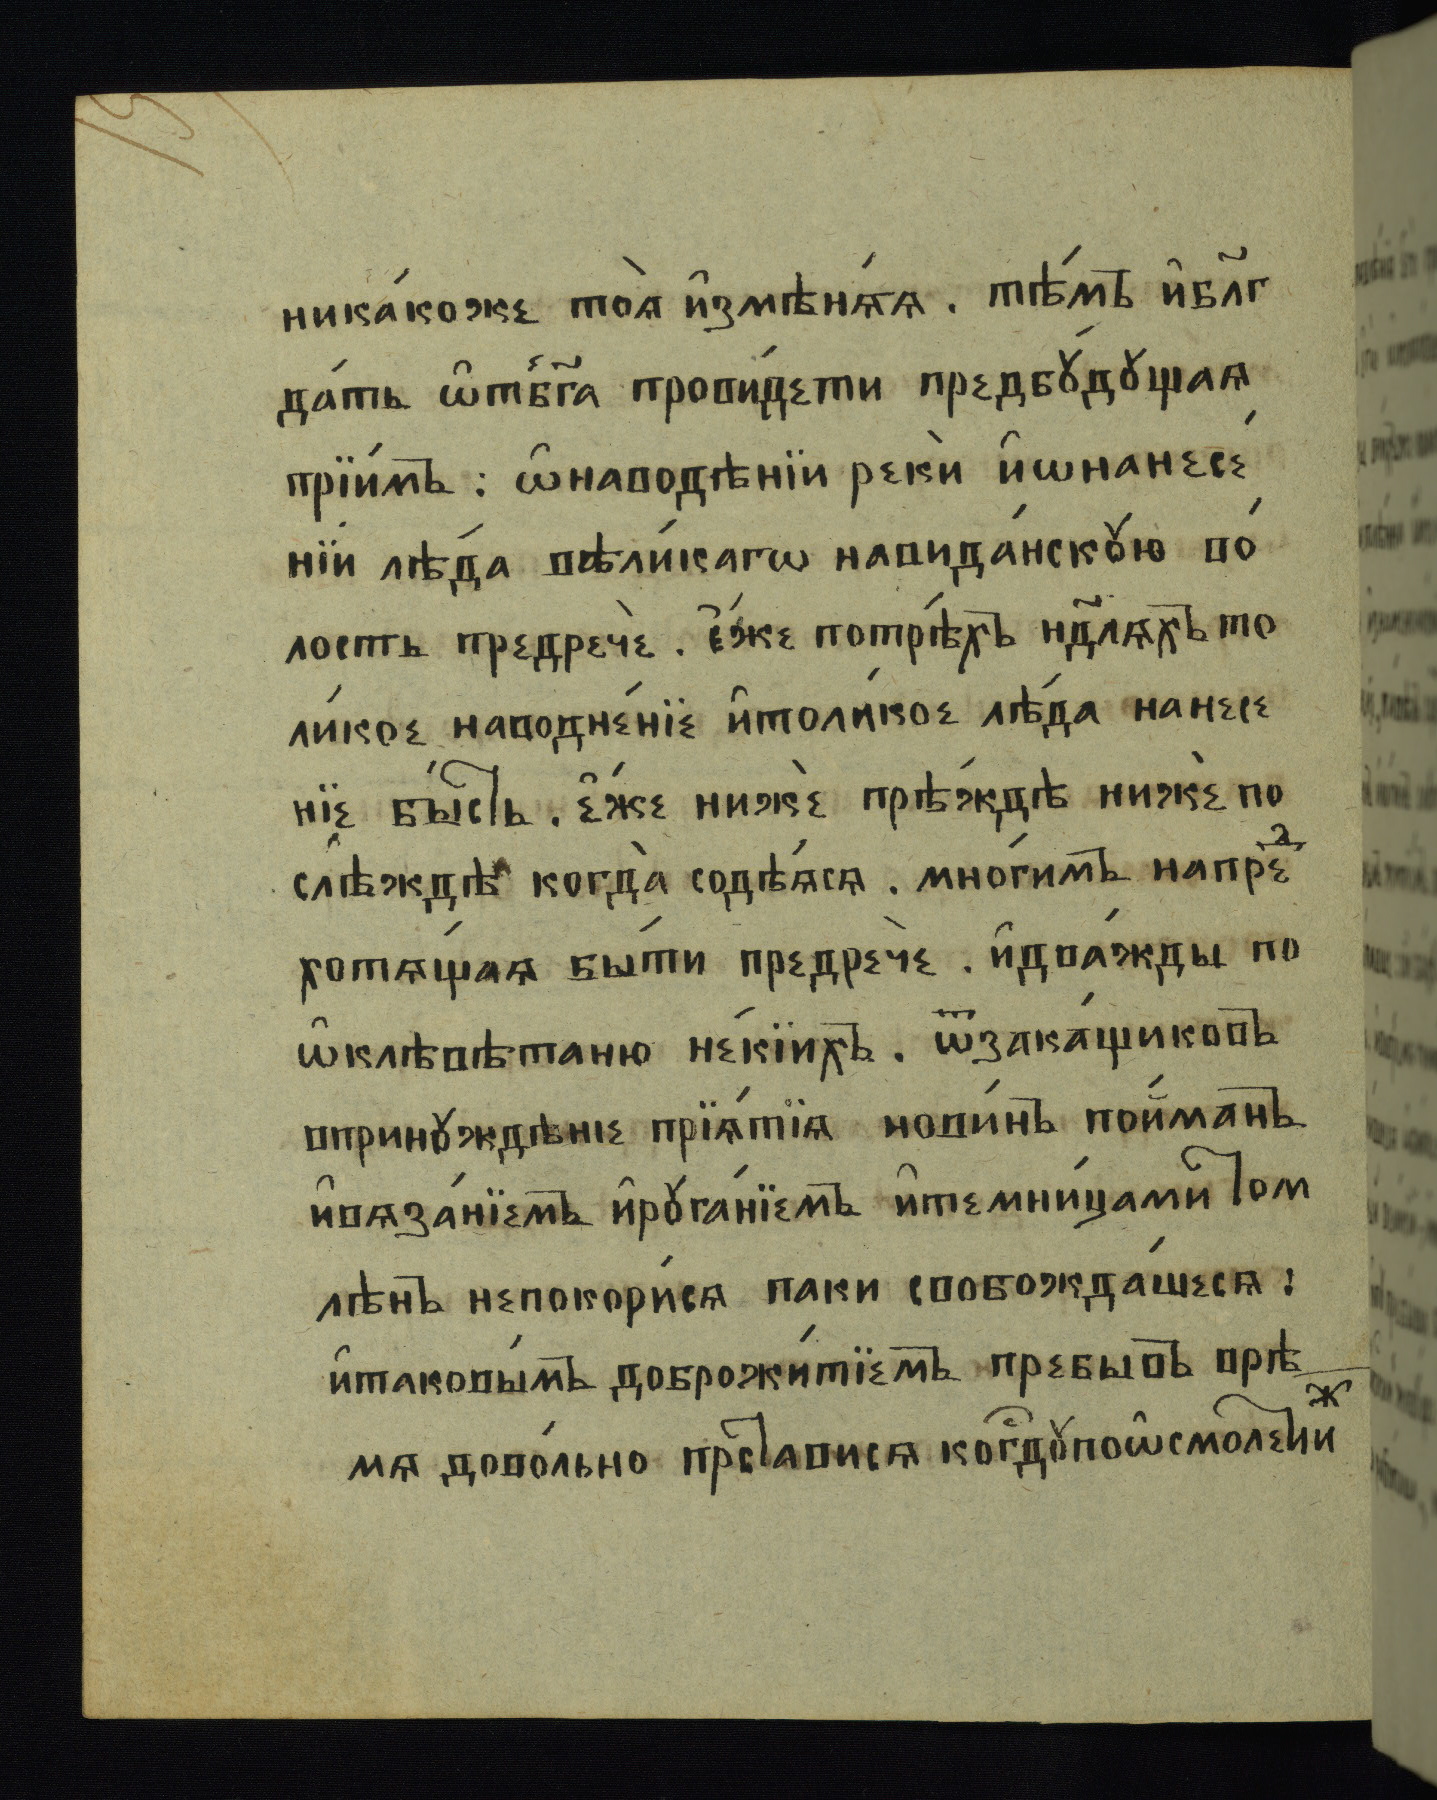 ника́коже тоѧ̀ и҆змѣнѧ́ѧ . тѣ́мъ и҆бл҃г
да́ть ѡ҆тбг҃а прови́дети предбꙋ́дꙋщаѧ
прїи́мъ : ѡ҆наводнѣнїи рекѝ и҆ѡнанесе́
нїи лѣ́да вѣли́кагѡ навида́нскꙋю во́
лость предречѐ . є҆́же потрѣ́хъ нд҃лѧхъ то
ли́кое наводне́нїе и҆толи́кое лѣ́да нанесе
нїе бы́сть . є҆́же нижѐ прѣ́ждѣ нижѐ по
слѣждѣ когда̀ содѣ́ѧсѧ . мно́гимъ напреⷣ
хотѧ́щаѧ бы́ти предречѐ . и҆два́жды по
ѡ҆клѣвѣтаню не́кїихъ . ѿзака́щиковъ
впринꙋждѣние прїѧ́тїѧ нови́нъ по́йманъ
и҆вѧза́нїемъ и҆рꙋга́нїемъ и҆темни́цами том
лѣнъ непокори́сѧ паки свобожда́шесѧ :
и҆таковы́мъ доброжи́тїемъ пребывъ врѣ
мѧ дово́льно прⷭ҇тависѧ когдꙋпоѡ҆смолениⷤ